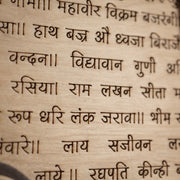 नामा।। महावीर विक्रम बजरंगी
सा।। हाथ बज्र औ ध्वजा बिराजै
वन्दन।। विद्यावान गुणी अ
रसिया। राम लखन सीता म
रूप धरि लंक जरावा।। भीम
संवारे।। लाय सजीवन ल
लाये।। रघुपति कीन्ही ब